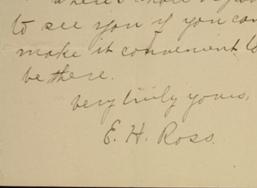 to see you if you can
make it convenient to
be there.
Very truly yours,
E. H. Ross.